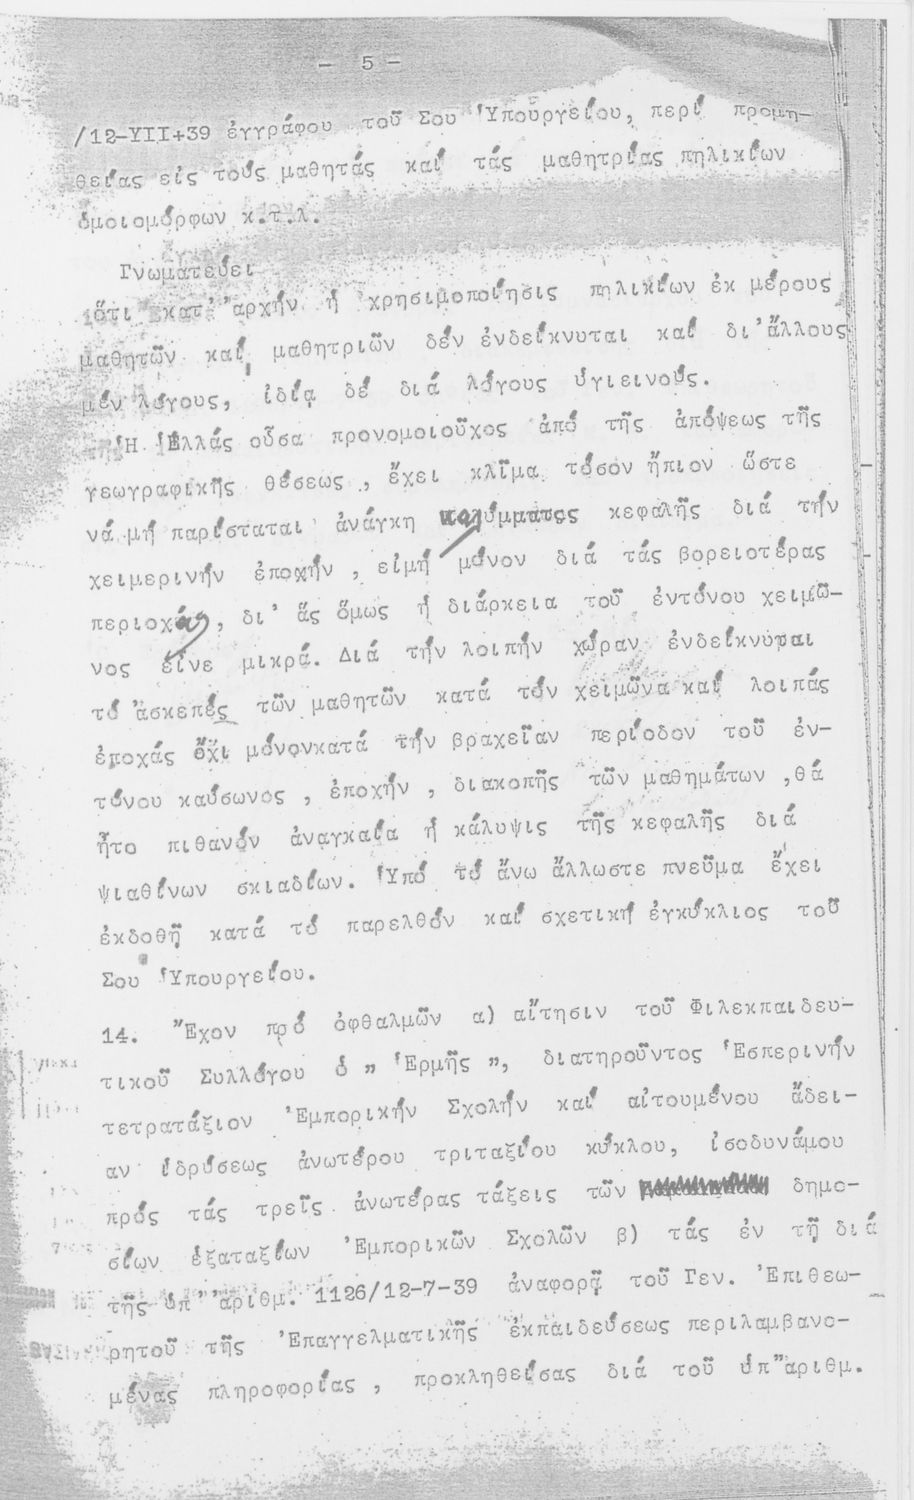 - 5 -
/12-ΥΙΙ+39 ἐγγράφου τοῦ Σου Ὑπουργείου, περί προμη-
θείας εἰς τούς μαθητάς καί τάς μαθητρίας πηλικίων
ὁμοιομόρφων κ.τ.λ.
Γνωματεύει
ὅτι κατ' ἀρχήν ἡ χρησιμοποίησις πηλικίων ἐκ μέρους
μαθητῶν καί μαθητριῶν δέν ἐνδείκνυται καί δι'ἄλλους
μέν λόγους, ἰδίᾳ δέ διά λόγους ὑγιεινούς.
Ἡ Ἑλλάς οὖσα προνομοιοῦχος ἀπό τῆς ἀπόψεως τῆς
γεωγραφικῆς θέσεως , ἔχει κλῖμα τόσον ἤπιον ὥστε
νά μή παρίσταται ἀνάγκη καλύμματος κεφαλῆς διά τήν
χειμερινήν ἐποχήν , εἰμή μόνον διά τάς βορειοτέρας
περιοχάς , δι' ἅς ὅμως ἡ διάρκεια τοῦ ἐντόνου χειμῶ-
νος εἶνε μικρά. Διά τήν λοιπήν χώραν ἐνδείκνυται
τό ἀσκεπές τῶν μαθητῶν κατά τόν χειμῶνα καί λοιπάς
ἐποχάς ὄχι μόνονκατά τήν βραχεῖαν περίοδον τοῦ ἐν-
τόνου καύσωνος , ἐποχήν , διακοπῆς τῶν μαθημάτων ,θά
ἦτο πιθανόν ἀναγκαία ἡ κάλυψις τῆς κεφαλῆς διά
ψιαθίνων σκιαδίων. Ὑπό τό ἄνω ἄλλωστε πνεῦμα ἔχει
ἐκδοθῆ κατά τό παρελθόν καί σχετική ἐγκύκλιος τοῦ
Σου Ὑπουργείου.
14. Ἔχον πρό ὀφθαλμῶν α) αἴτησιν τοῦ Φιλεκπαιδευ-
τικοῦ Συλλόγου ὁ " Ἑρμῆς ", διατηροῦντος Ἑσπερινήν
τετρατάξιον Ἐμπορικήν Σχολήν καί αἰτουμένου ἄδει-
αν ἱδρύσεως ἀνωτέρου τριταξίου κύκλου, ἰσοδυνάμου
πρός τάς τρεῖς ἀνωτέρας τάξεις τῶν δημο-
σίων ἑξαταξίων Ἐμπορικῶν Σχολῶν β) τάς ἐν τῇ διά
τῆς ὑπ' ἀριθμ. 1126/12-7-39 ἀναφορᾷ τοῦ Γεν. Ἐπιθεω-
ρητοῦ τῆς Ἐπαγγελματικῆς ἐκπαιδεύσεως περιλαμβανο-
μένας πληροφορίας , προκληθείσας διά τοῦ ὑπ"ἀριθμ.